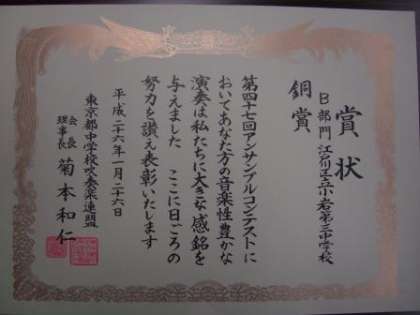 賞状
銅賞
B部門 江戸川区立小岩第三中学校
第四十七回アンサンブルコンテストに
おいてあなた方の音楽性豊かな
演奏は私たちに大きな感銘を
与えました ここに日ごろの
努力を讃え表彰いたします
平成二十六年一月二十六日
東京都中学校吹奏楽連盟
会長
理事長
菊本和仁